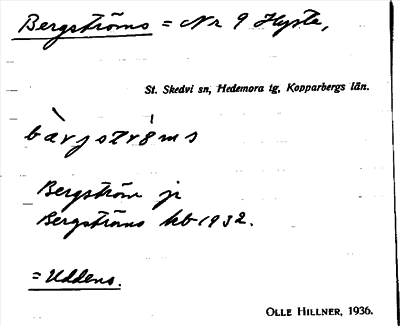 Bergströms = Nr 9 Hysta,
St. Skedvi sn, Hedemora tg, Kopparbergs län.
bàrjströ́ms
Bergström jr
Bergströms kb 1932.
= Uddens.
OLLE HILLNER, 1936.